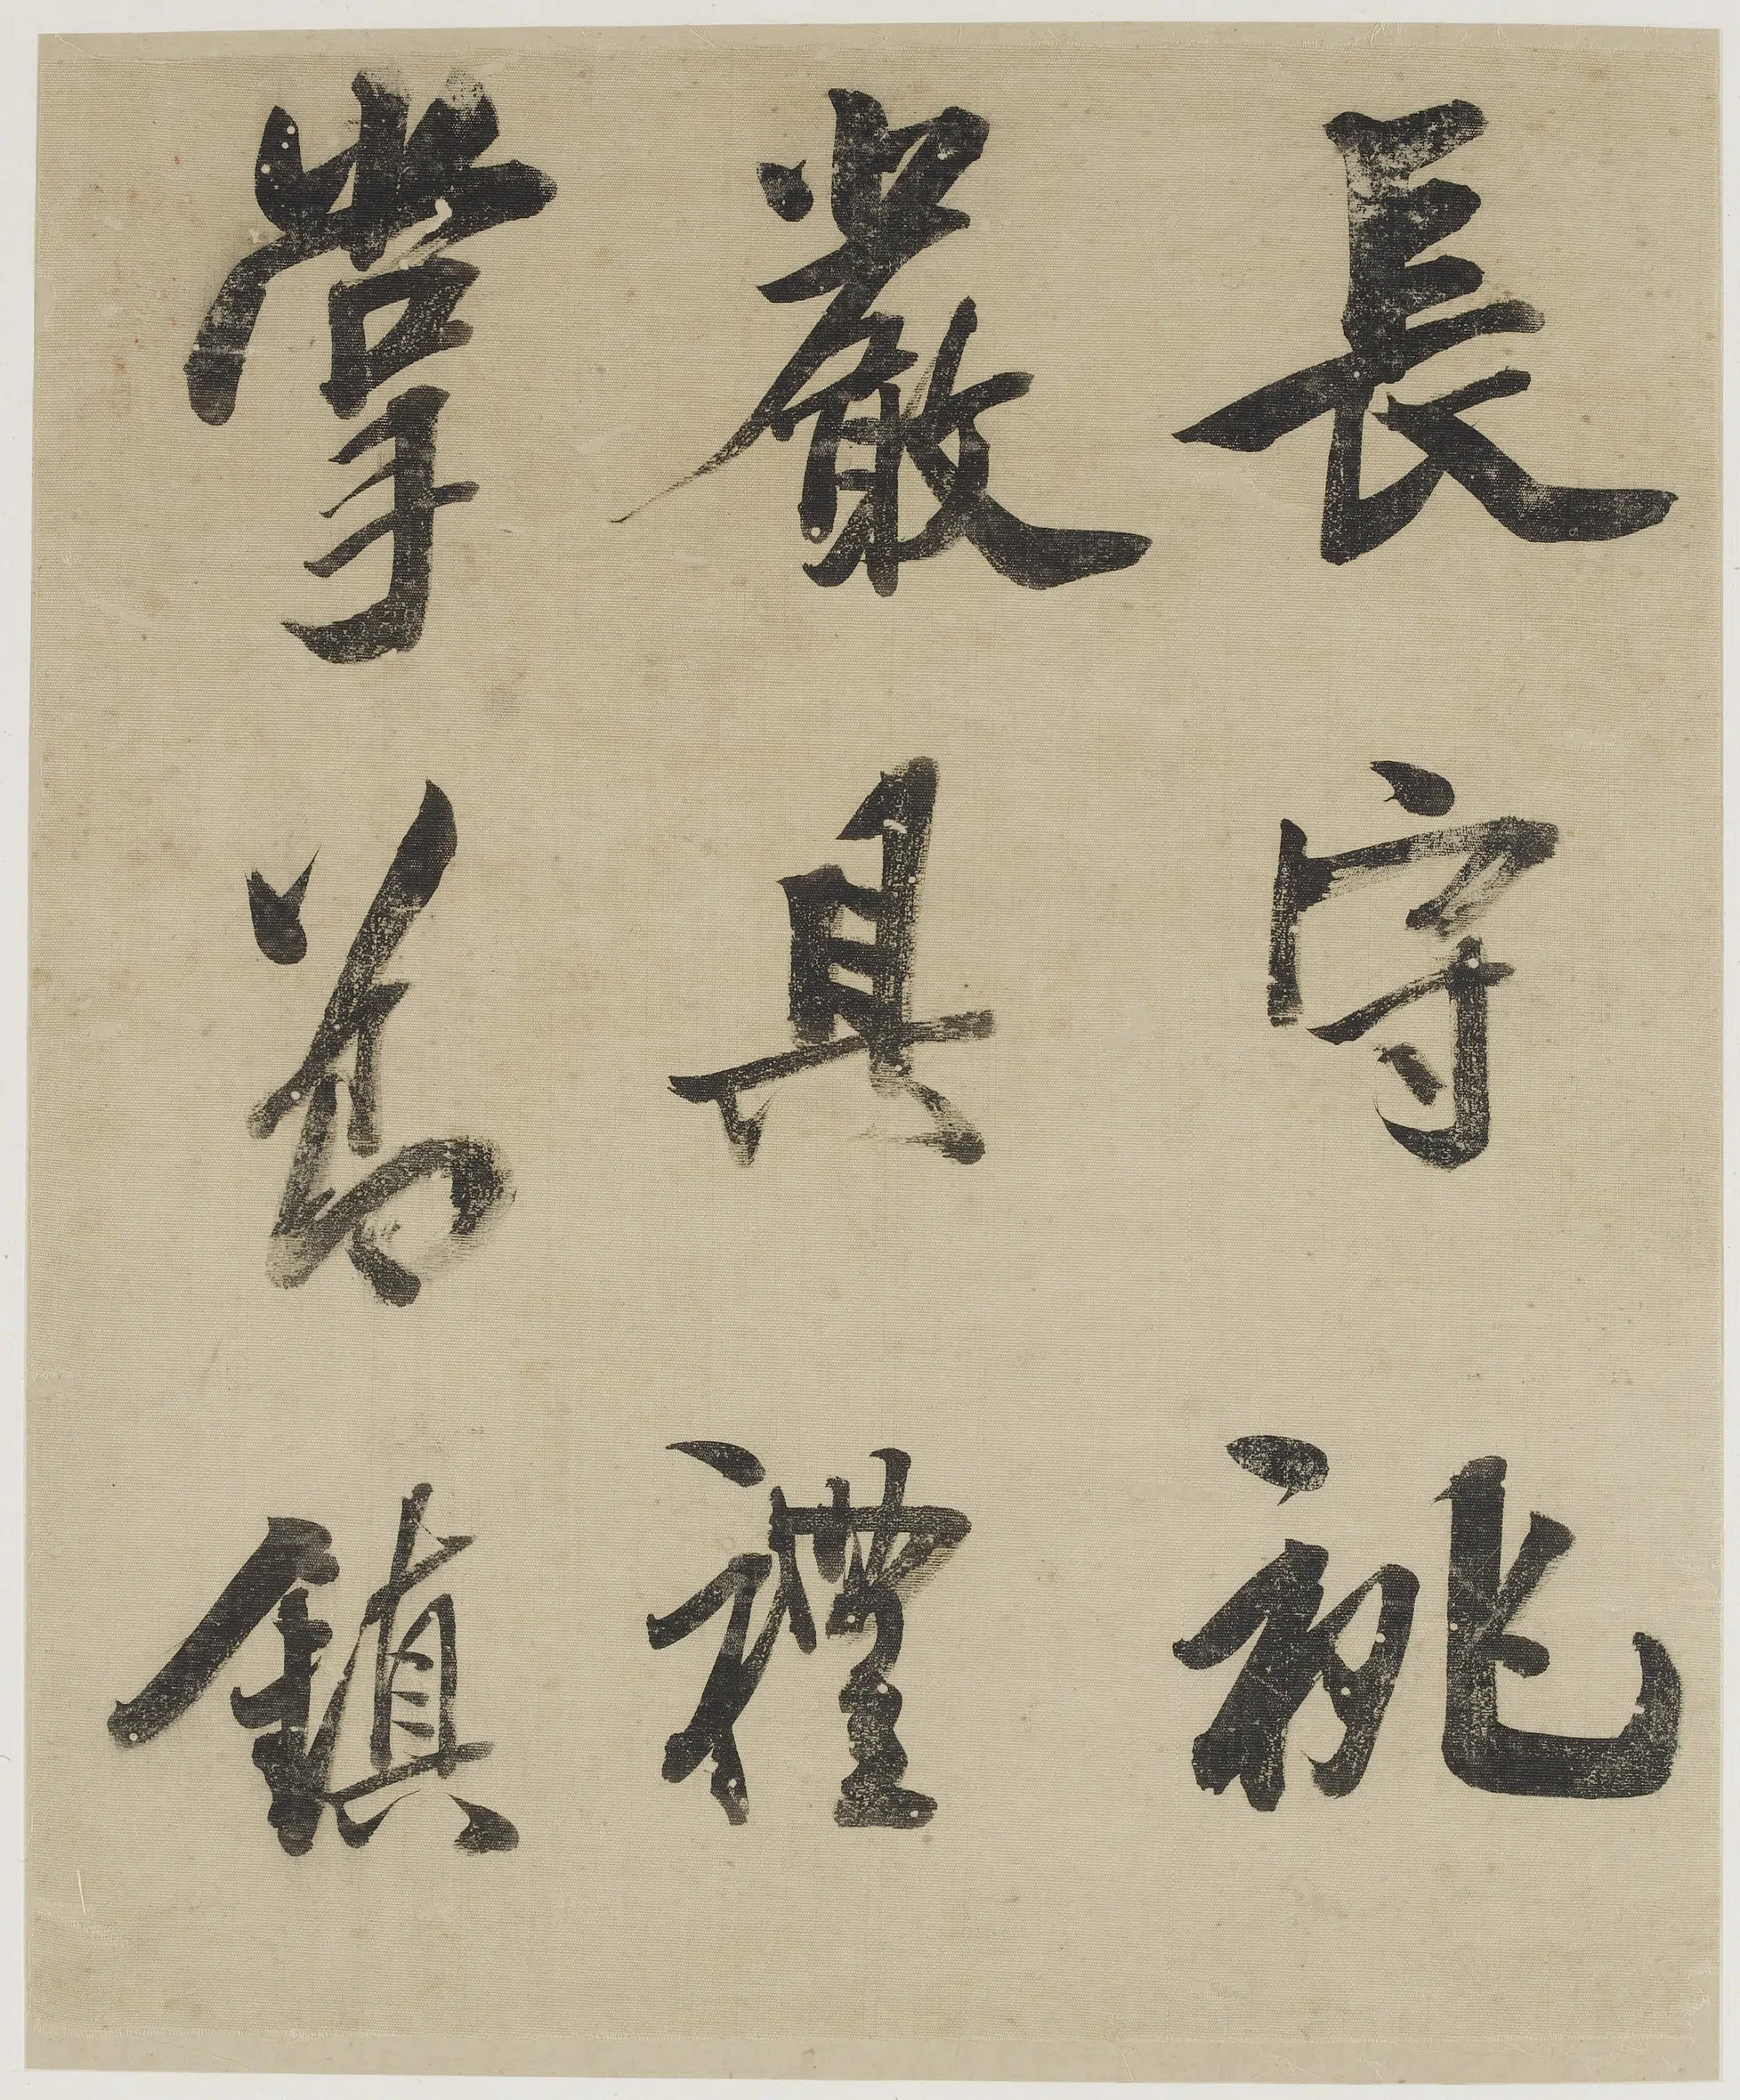 長守祧
嚴具禮
掌若鎮